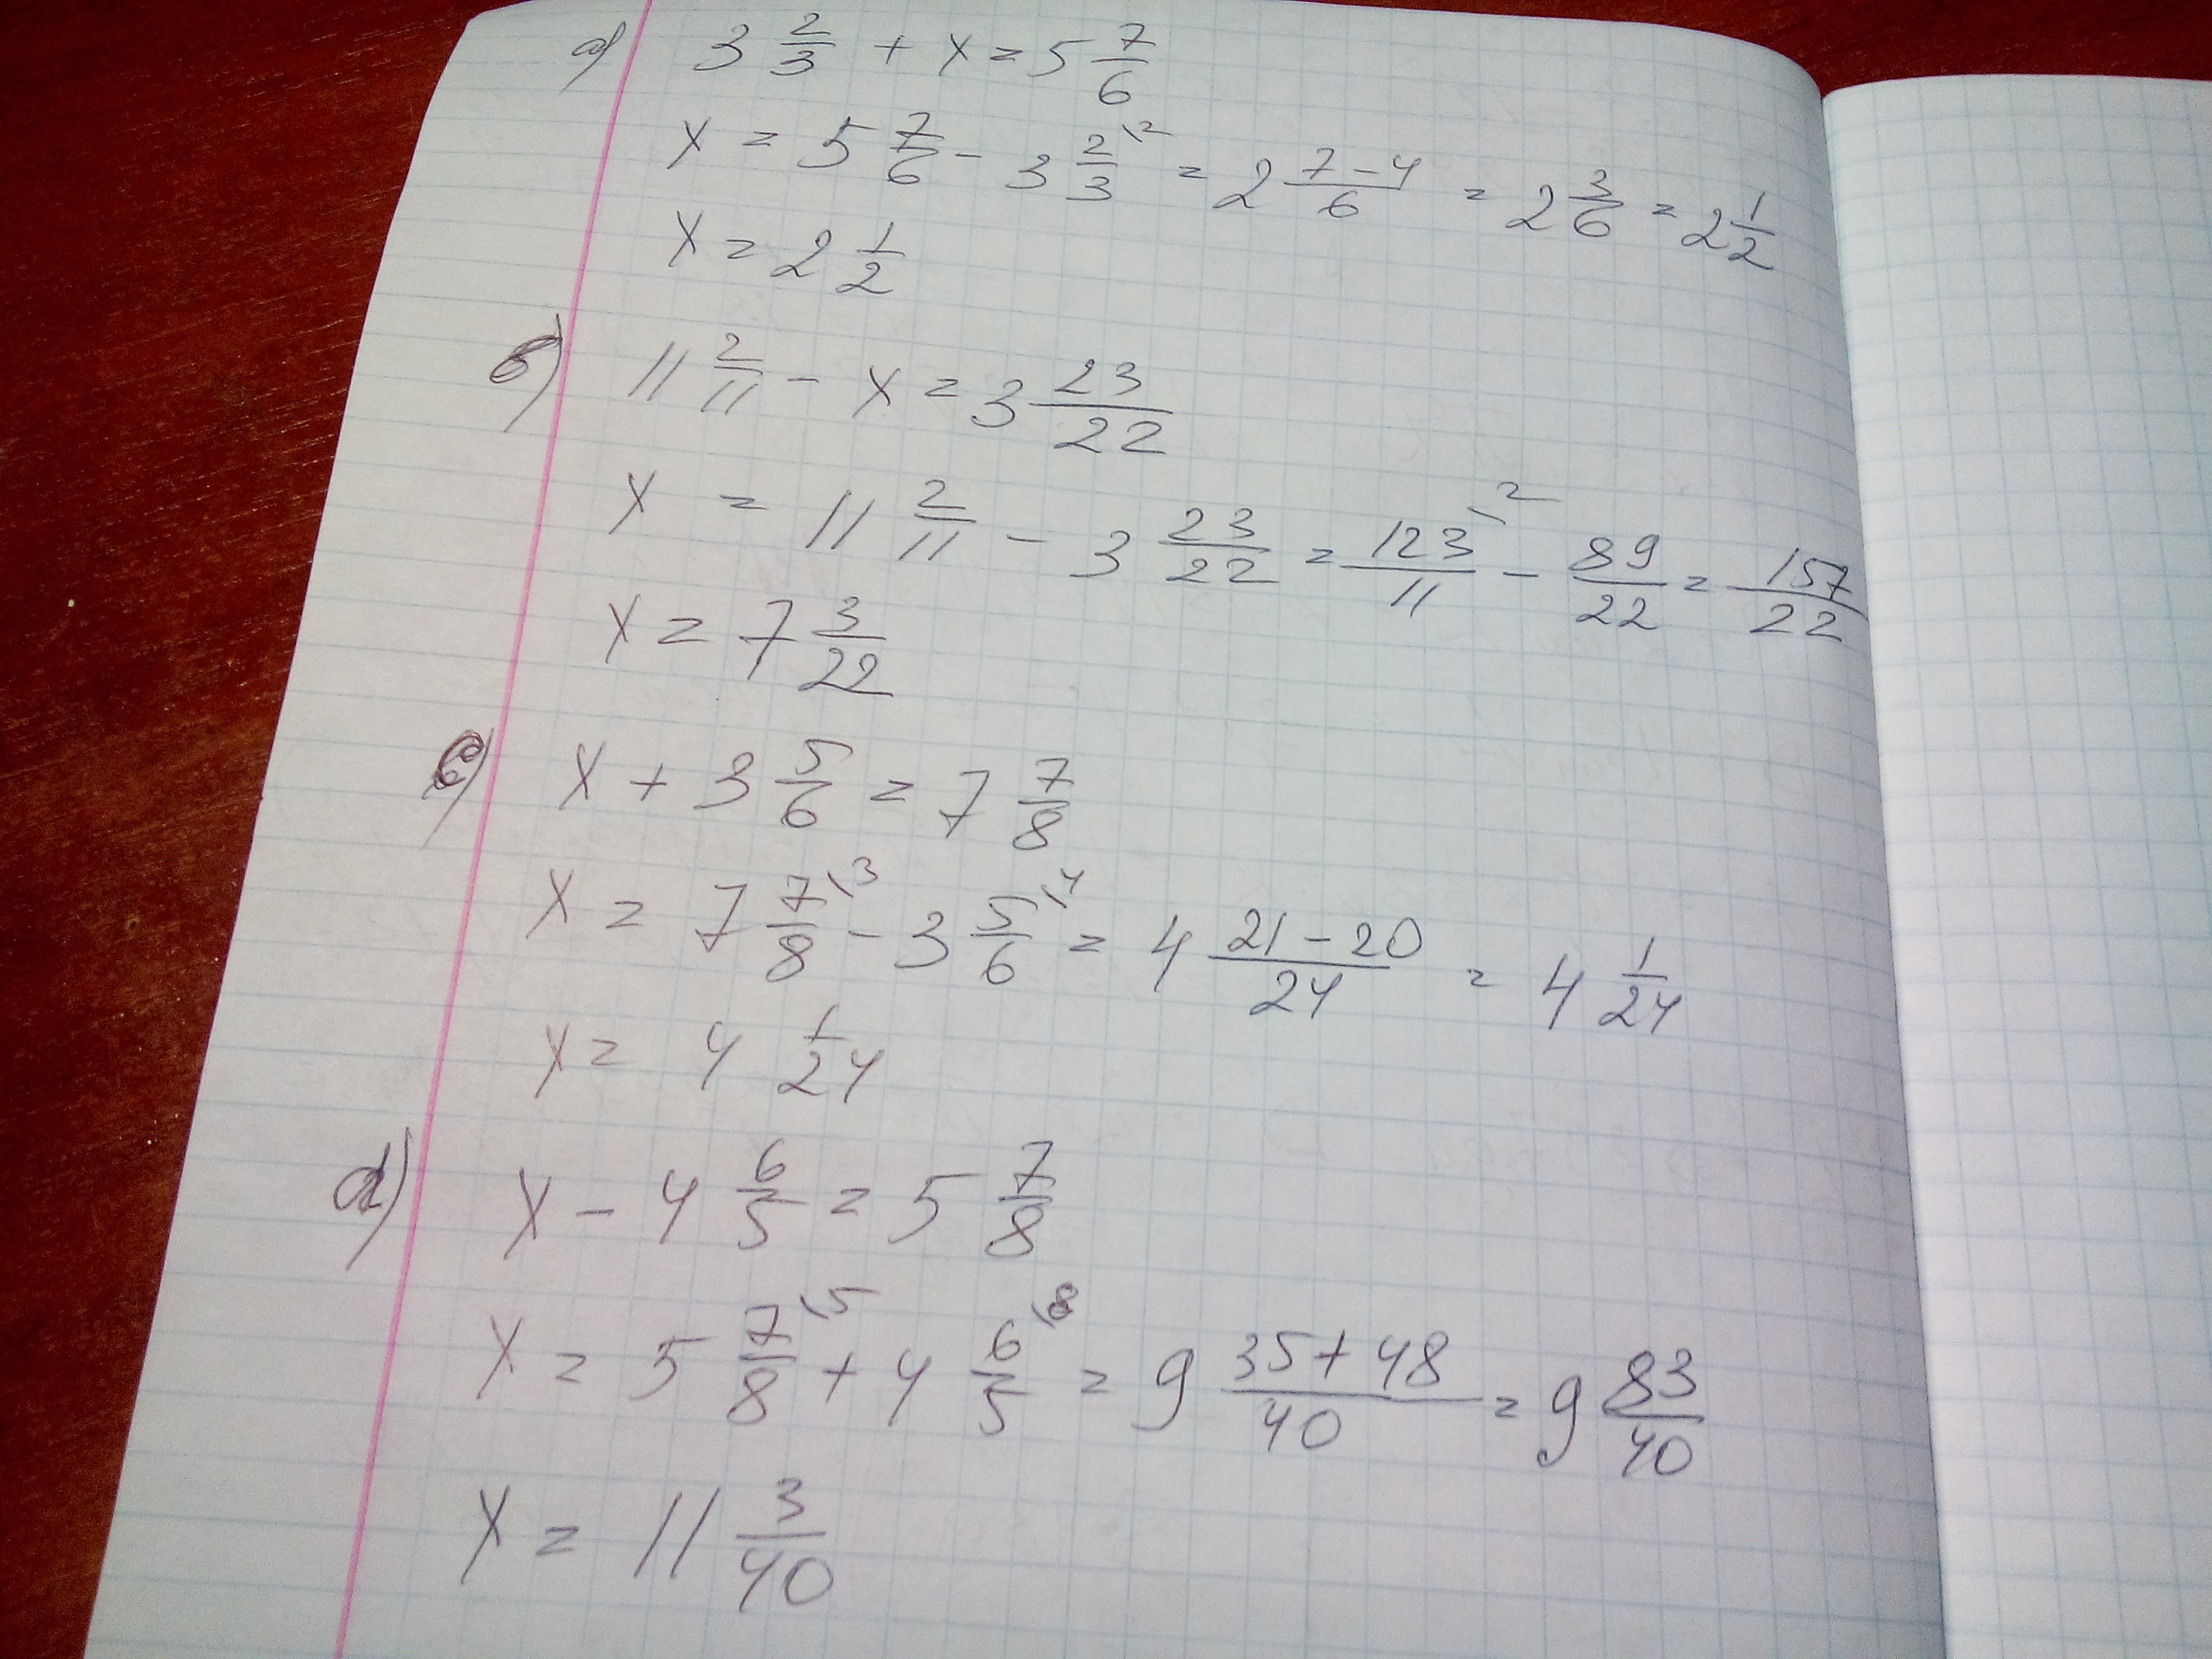 а) 3 2/3 + x = 5 7/6
x = 5 7/6 - 3 2/3 \2 = 2 (7-4)/6 = 2 3/6 = 2 1/2
x = 2 1/2
б) 11 2/11 - x = 3 23/22
x = 11 2/11 - 3 23/22 = 123/11 \2 - 89/22 = 157/22
x = 7 3/22
x + 3 5/6 = 7 7/8
x = 7 7/8 \3 - 3 5/6 \4 = 4 (21-20)/24 = 4 1/24
x = 4 1/24
d) x - 4 6/5 = 5 7/8
x = 5 7/8 \5 + 4 6/5 \8 = 9 (35+48)/40 = 9 83/40
x = 11 3/40